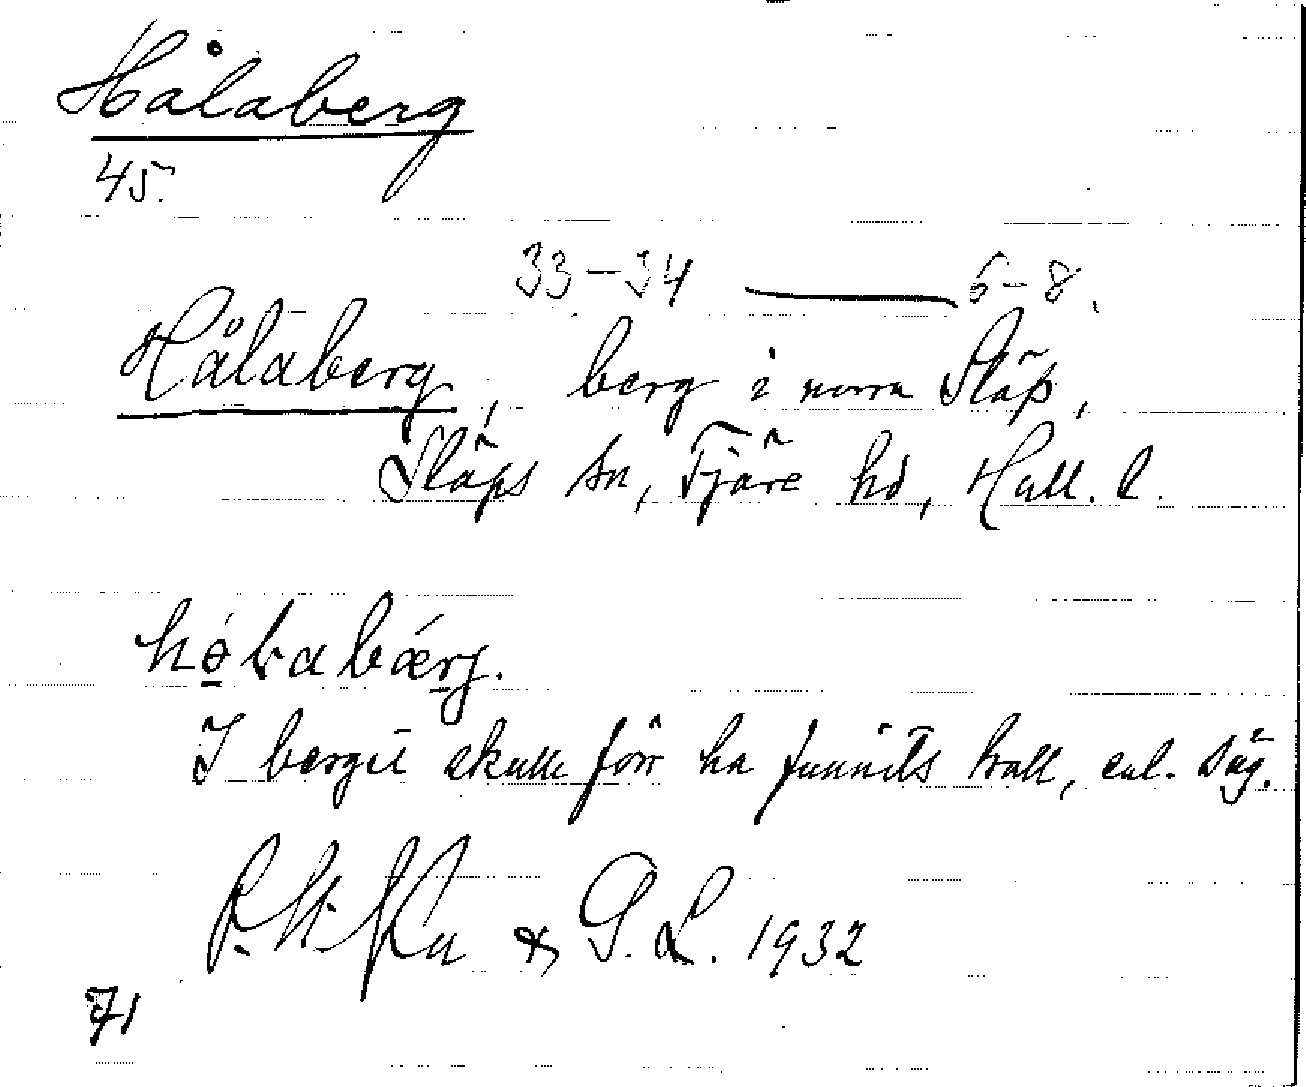 Hålaberg
45.
33-34 — 6-8.
Hålaberg, berg i norra Släp,
Släps sn, Fjäre hd, Hall. l.
I berget skulle förr ha funnits troll, enl. säg.
& G. L. 1932
71